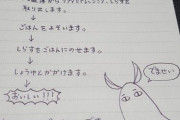 取り出します。
ごはんをよそいます。
しらすをごはんにのせます。
しょうゆをかけます。
おいしい!!!
でませい